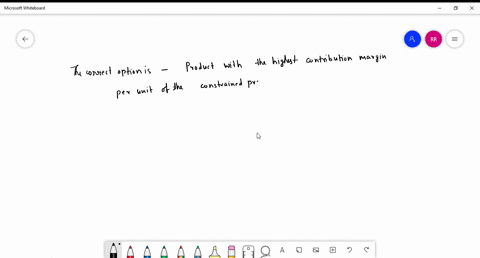 Microsoft Whiteboard
RR
The correct option is – Product with the highest contribution margin
per unit of the constrained pr